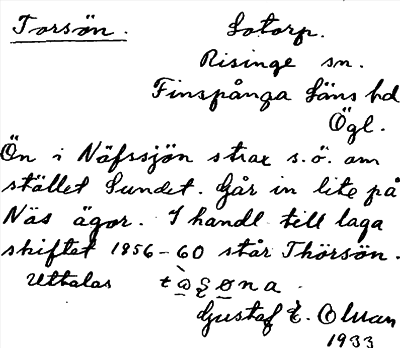 Torsön.
Sotorp.
Risinge sn.
Finspånga läns hd
Ögl.
Ön i Näfssjön strax s.ö. om
stället Sundet. Går in lite på
Näs ägor. I handl. till laga
skiftet 1856-60 står Thörsön.
Uttalas
Gustaf E.
1933